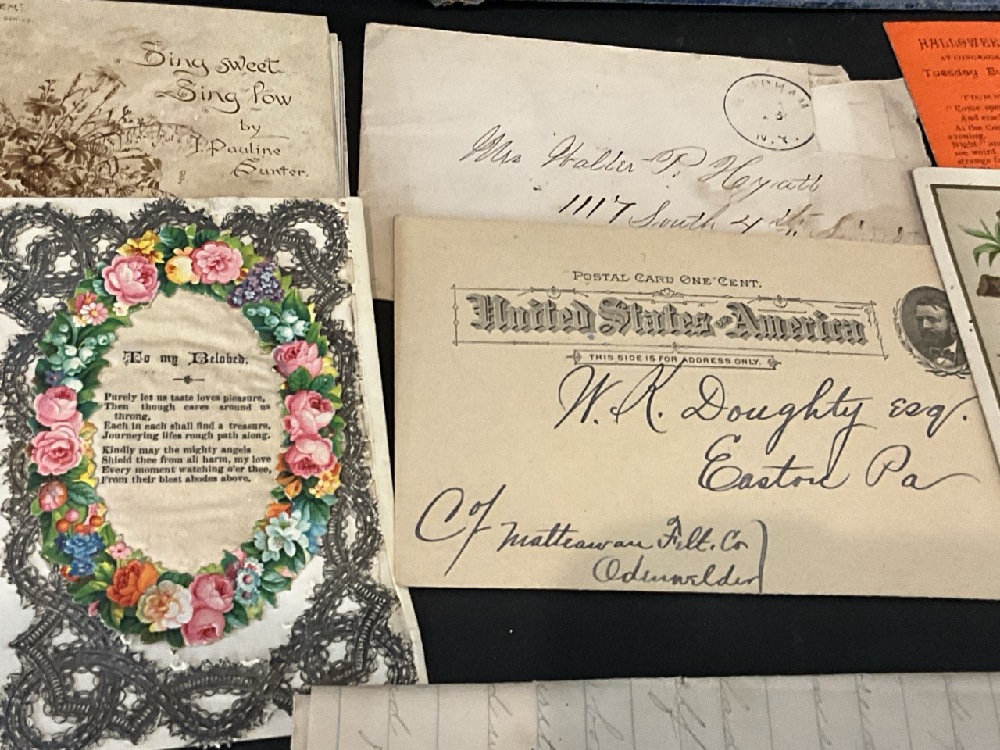 Sing sweet
Sing low
by
Pauline
Sunter.
N.Y.
Mrs Walter P. Hyatt
1117 South 4 St
HALLOWEE
Tuesday
To my Beloved.
Purely let us taste loves pleasure,
Then though cares around us
throng,
Each in each shall find a treasure,
Journeying lifes rough path along.
Kindly may the mighty angels
Shield thee from all harm, my love
Every moment watching o'er thee,
From their blest abodes above.
POSTAL CARD ONE CENT.
United States of America
THIS SIDE IS FOR ADDRESS ONLY.
W. K. Doughty esq.
Easton Pa
C/o Matteawan Felt. Co
Odenwelder